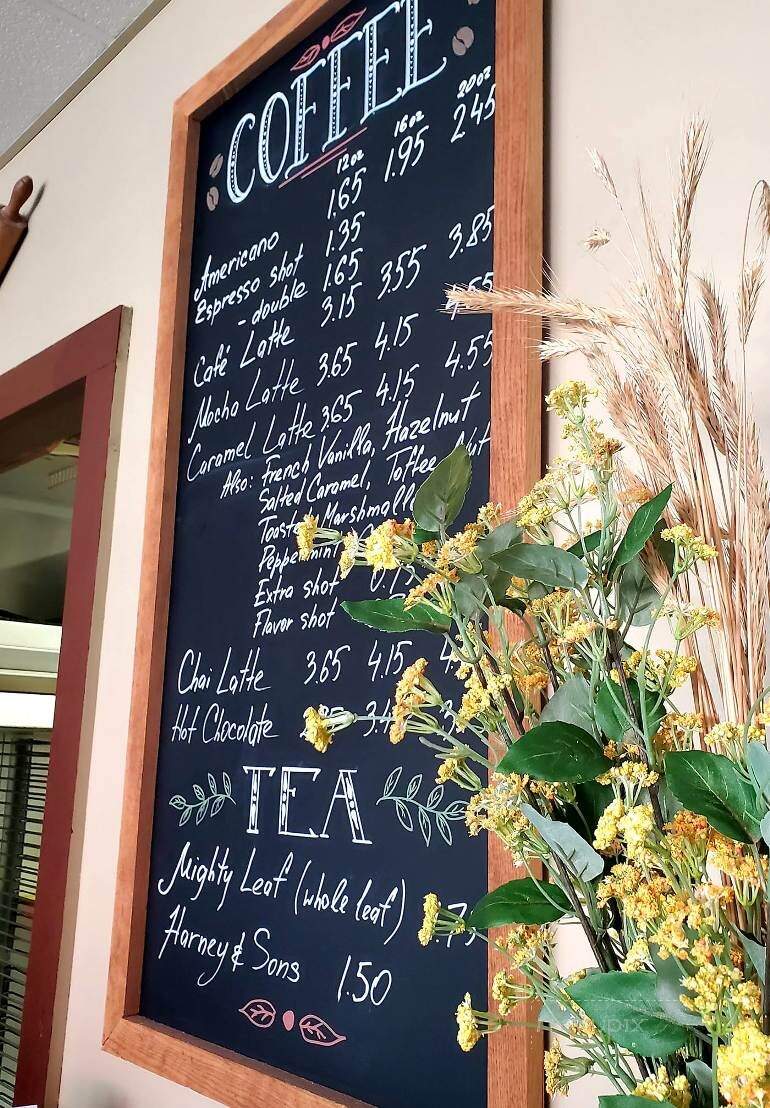 COFFEE
12oz 16oz 20oz
Americano 1.65 1.95 2.45
Espresso shot 1.35
- double 1.65
Café Latte 3.15 3.55 3.85
Mocha Latte 3.65 4.15 4.55
Caramel Latte 3.65 4.15 4.55
Also: French Vanilla, Hazelnut
Salted Caramel, Toffee Nut
Toasted Marshmall
Peppermint
Extra shot
Flavor shot
Chai Latte 3.65 4.15
Hot Chocolate
TEA
Mighty Leaf (whole leaf)
Harney & Sons 1.50